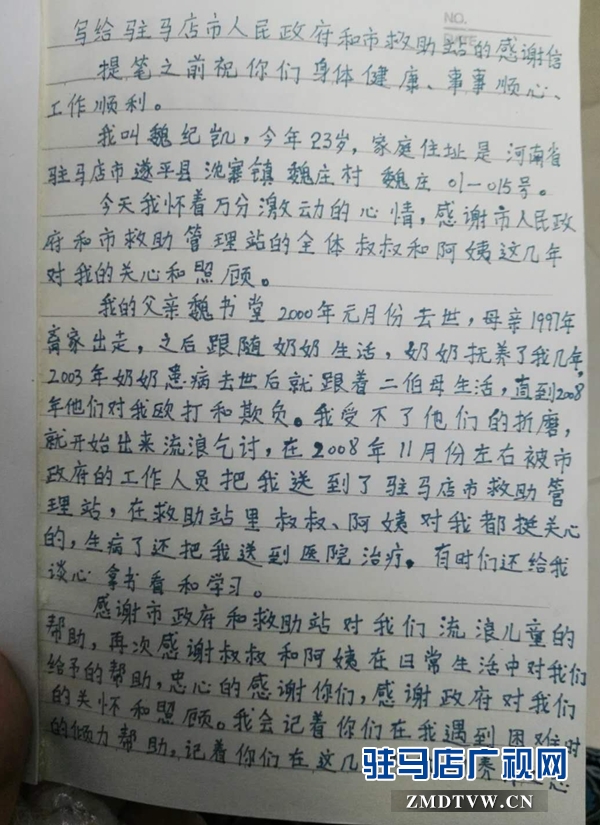 NO.
DATE
写给驻马店市人民政府和市救助站的感谢信
提笔之前祝你们身体健康、事事顺心、
工作顺利。
我叫魏纪凯,今年23岁,家庭住址是河南省
驻马店市遂平县沈寨镇魏庄村 魏庄01—015号。
今天我怀着万分激动的心情,感谢市人民政
府和市救助管理站的全体叔叔和阿姨这几年
对我的关心和照顾。
我的父亲魏书堂2000年元月份去世,母亲1997年
离家出走,之后跟随奶奶生活,奶奶抚养了我几年,
2003年奶奶患病去世后就跟着二伯母生活,直到2008
年他们对我欧打和欺负。我受不了他们的折磨,
就开始出来流浪乞讨,在2008年11月份左右被市
政府的工作人员把我送到了驻马店市救助管
理站,在救助站里叔叔、阿姨对我都挺关心
的,生病了还把我送到医院治疗。有时们还给我
谈心拿书看和学习。
感谢市政府和救助站对我们流浪儿童的
帮助,再次感谢叔叔和阿姨在日常生活中对我们
给予的帮助,忠心的感谢你们,感谢政府对我们
的关怀和照顾。我会记着你们在我遇到困难时
的倾力帮助,记着你们在这几
驻马店广视网
ZMDTVW.CN